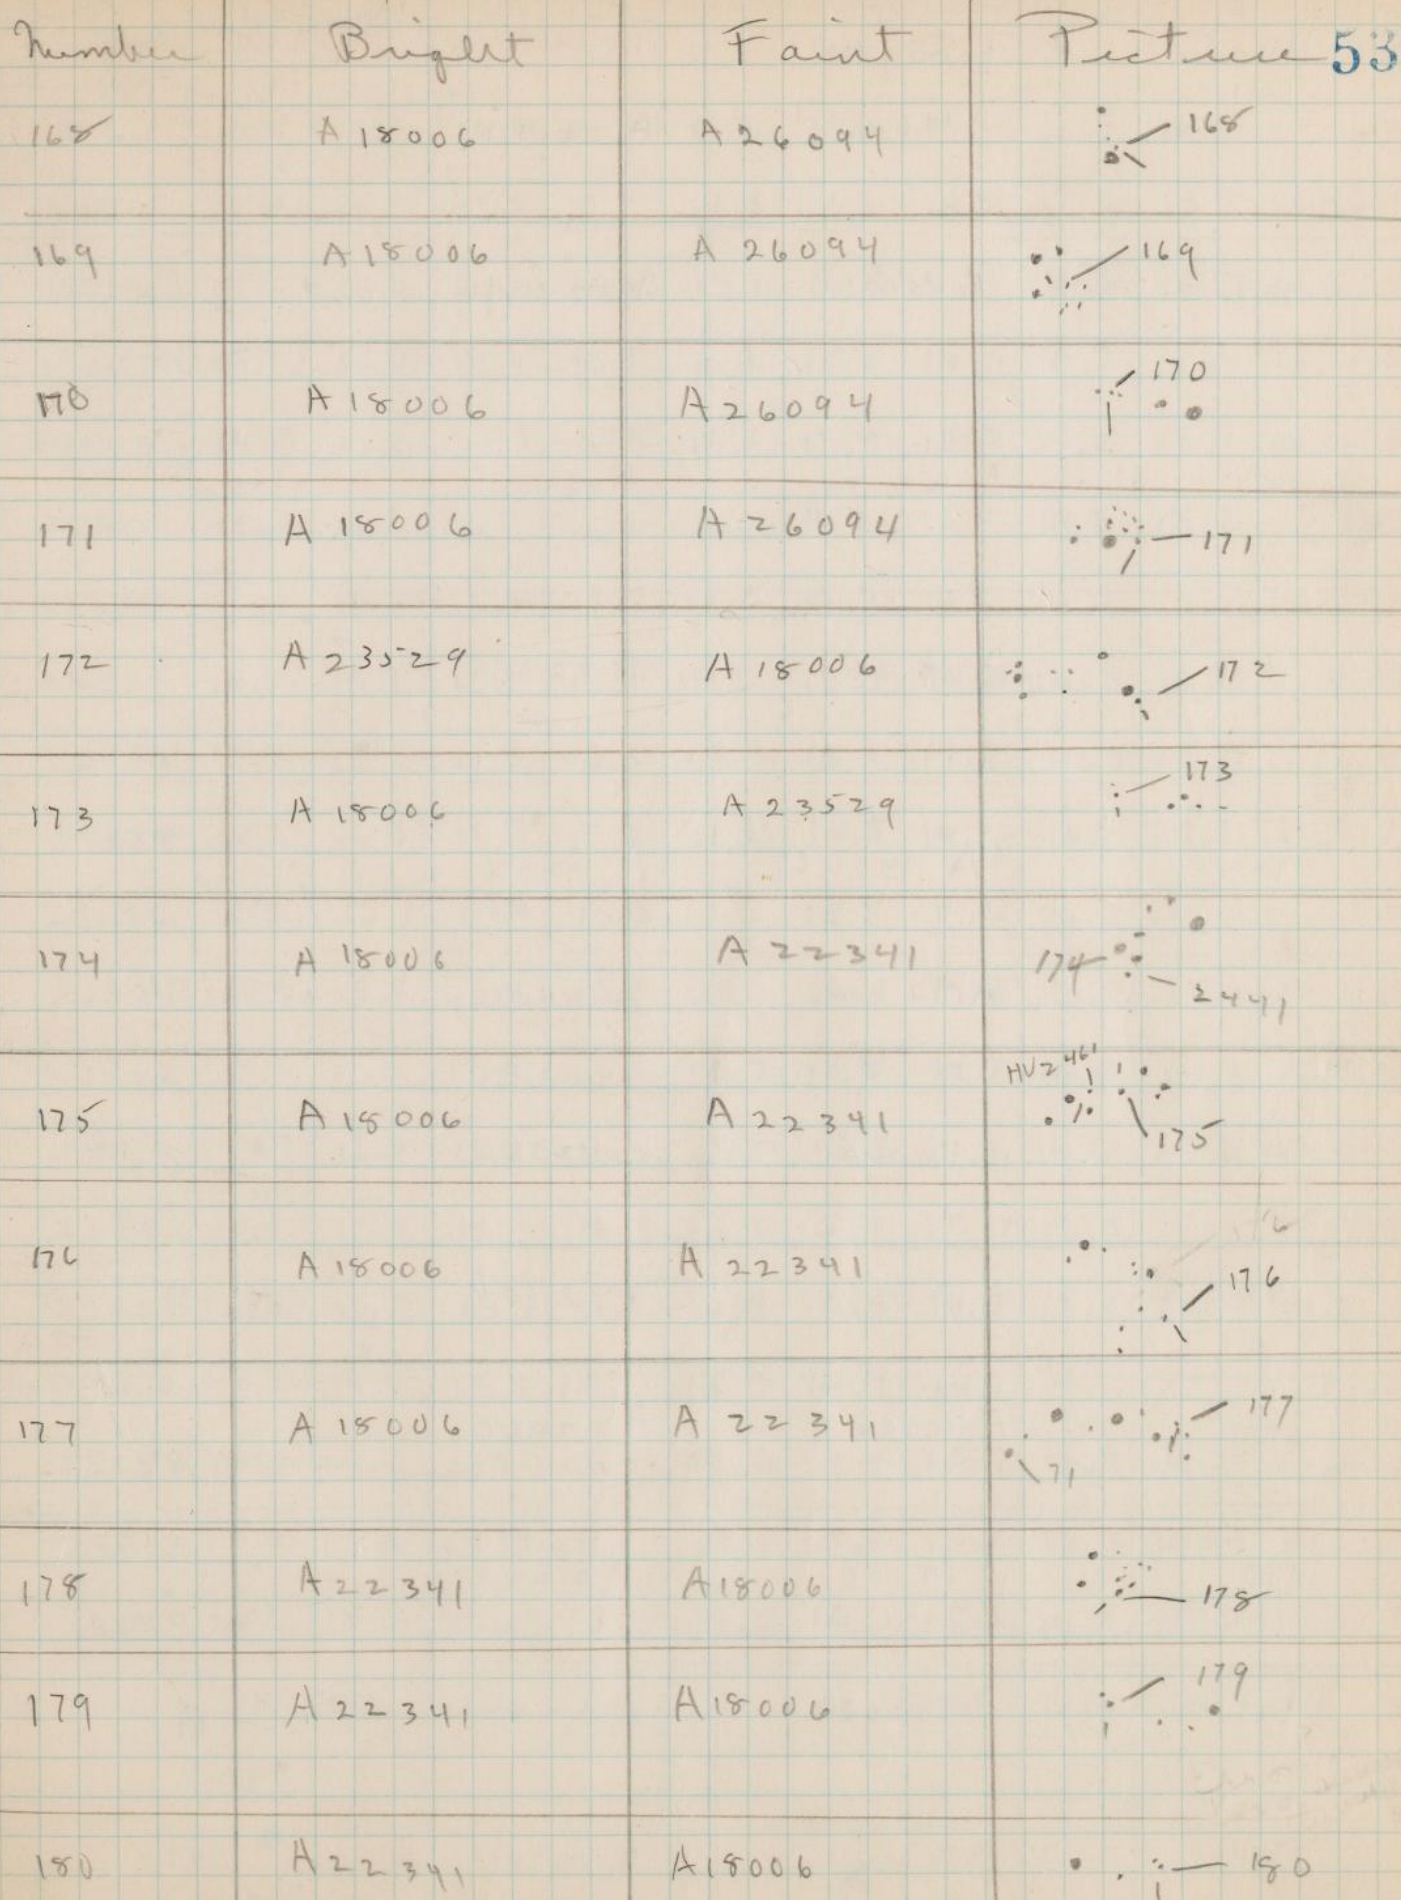 Number Bright Faint Picture 53
168 A 18006 A 26094 168
169 A 18006 A 26094 169
170 A 18006 A 26094 170
171 A 18006 A 26094 171
172 A 23529 A 18006 172
173 A 18006 A 23529 173
174 A 18006 A 22341 174
2441
HV2461
175 A 18006 A 22341 175
176 A 18006 A 22341 176
177 A 18006 A 22341 177
71
178 A 22341 A 18006 178
179 A 22341 A 18006 179
180 A 22341 A 18006 180